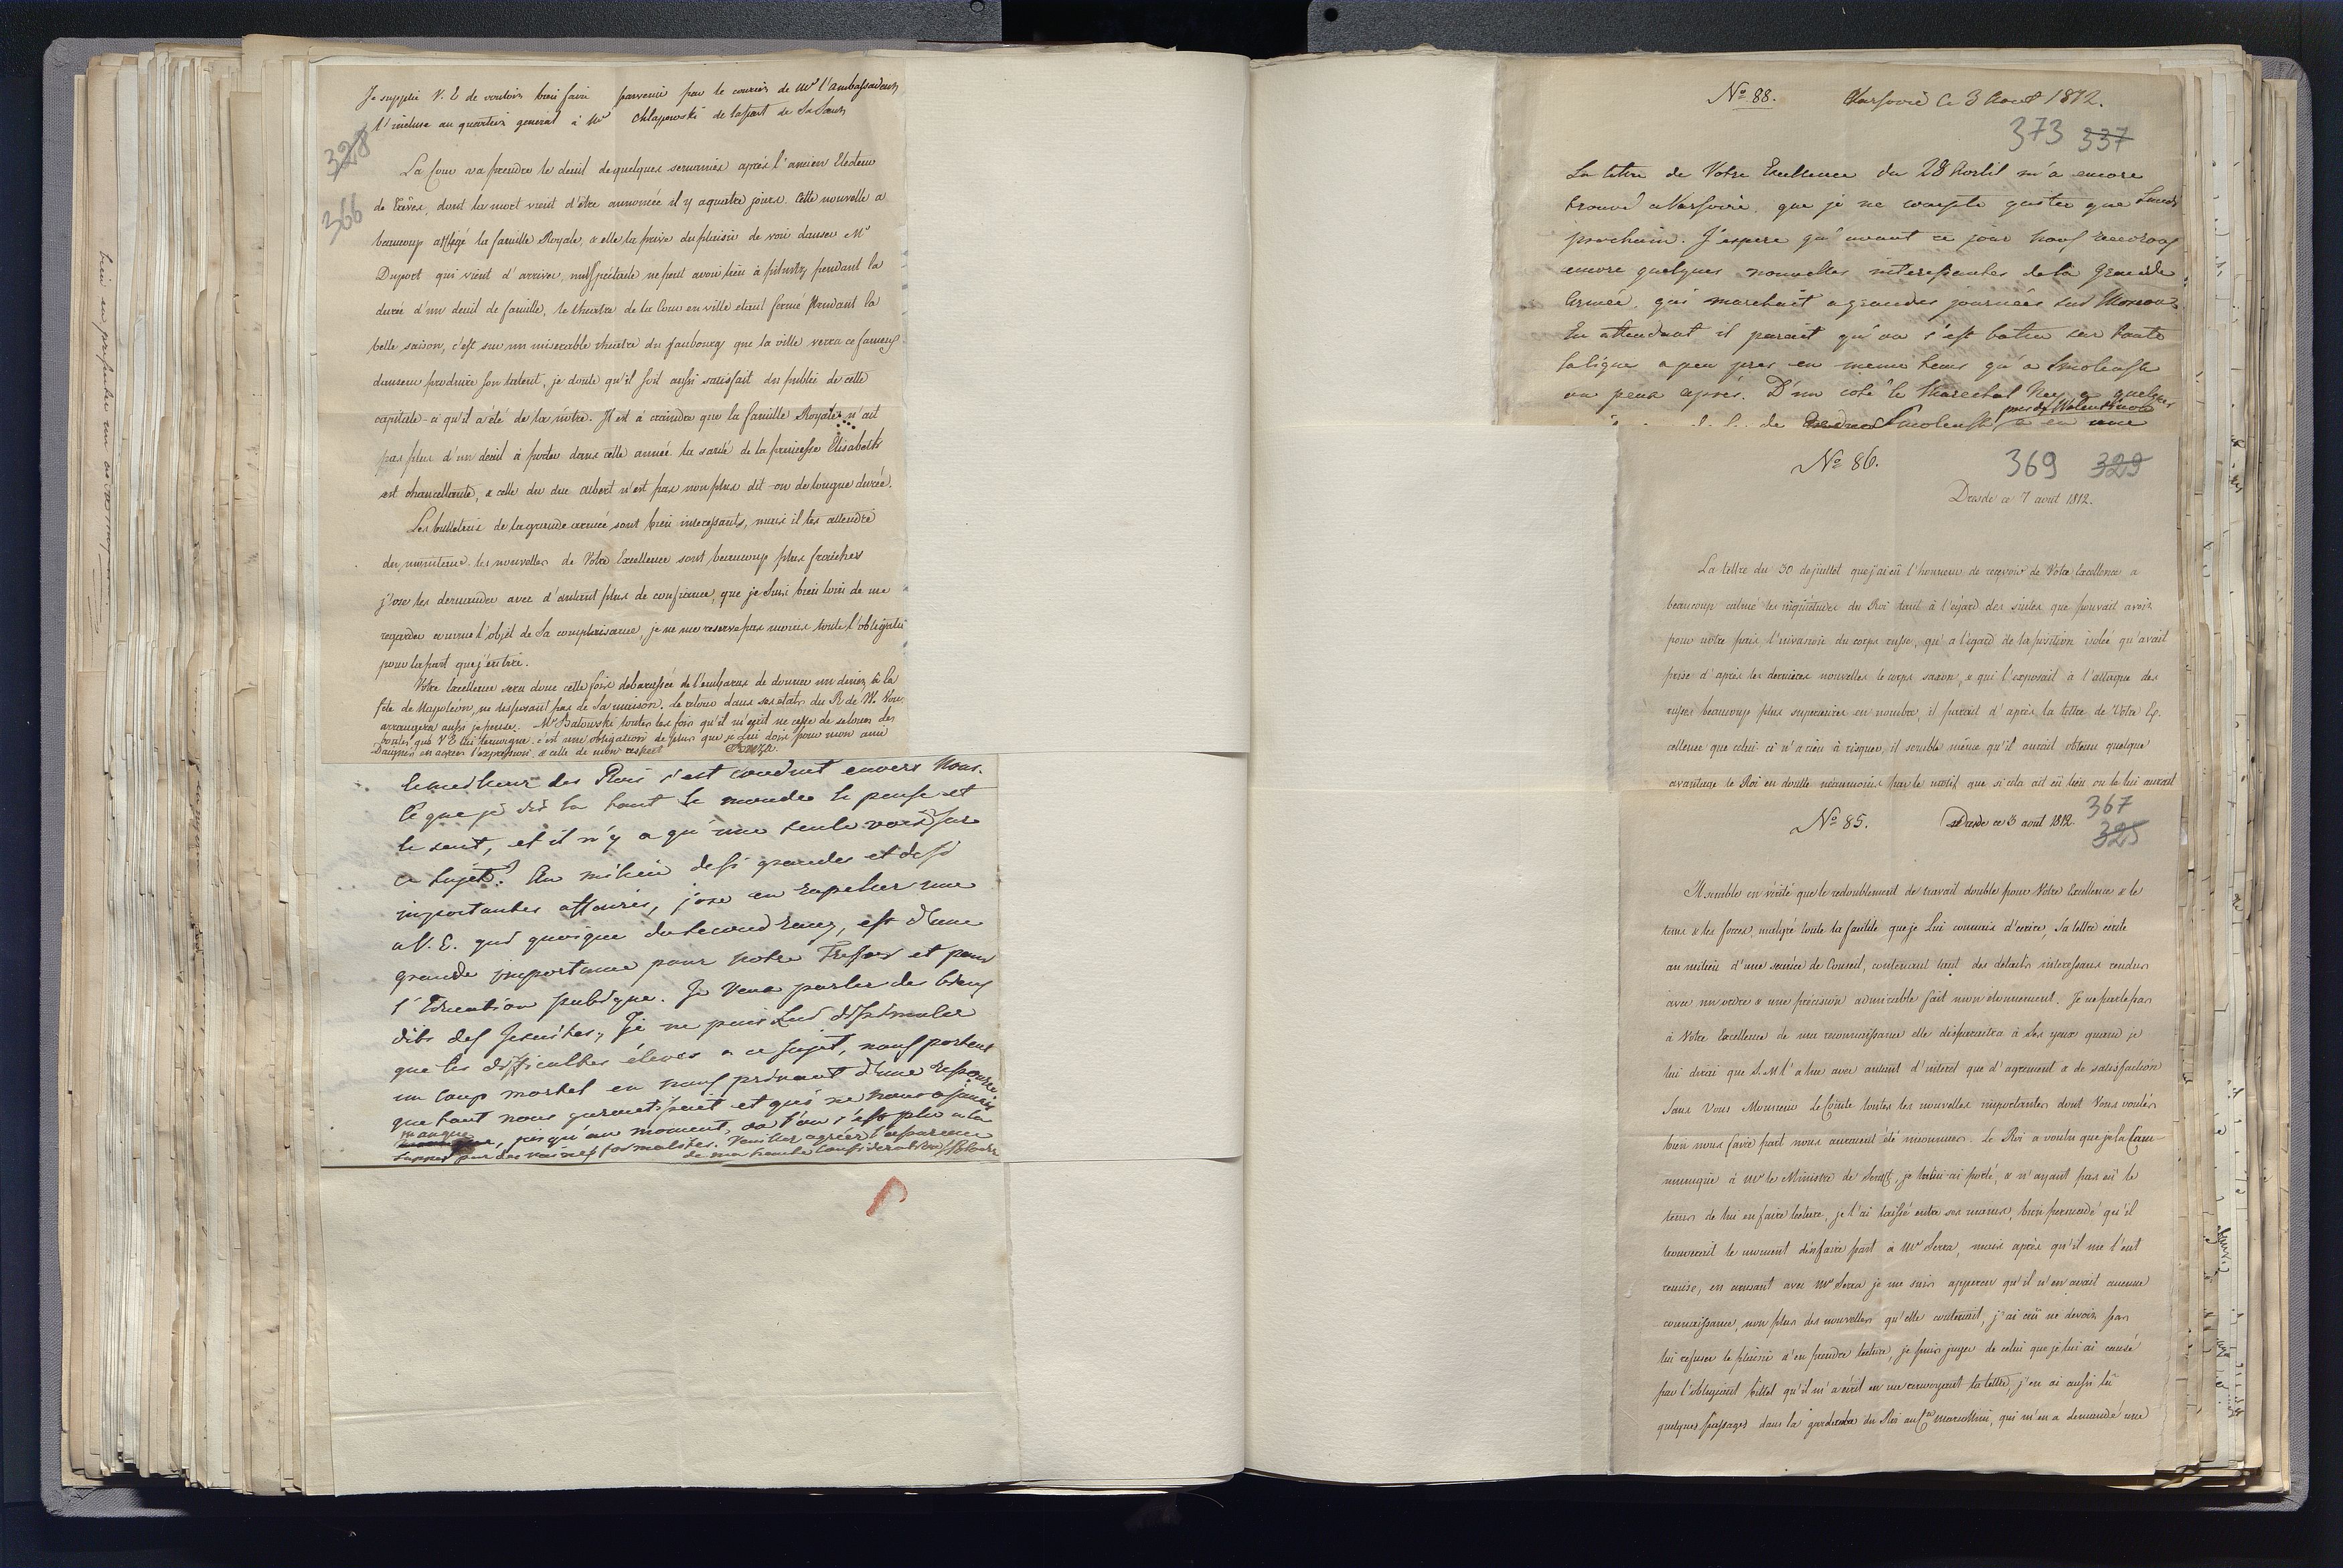 Je supplie V. E de vouloir bien faire parvenir par le courier de Mr l'ambassadeur
l'incluse au quartier general à Mr Chlapowski de la part de Sa Soeur
328
366
La Cour va prendre le deuil de quelques semaines après l'ancien Electeur
de Trêves, dont la mort vient d'être annoncée il y a quatre jours. Cette nouvelle a
beaucoup affligé la famille Royale, & elle la prive du plaisir de voir danser Mr
Duport qui vient d'arriver, nul spectacle ne peut avoir lieu à pilnitz pendant la
durée d'un deuil de famille, le theatre de la Cour en ville etant fermé pendant la
belle saison, c'est sur un miserable theatre du faubourg que la ville verra ce fameux
danseur produire son talent, je doute qu'il soit aussi satisfait du public de cette
capitale-ci qu'il a été de la nôtre. Il est à craindre que la famille Royale n'ait
pas plus d'un deuil à porter dans cette année. la santé de la princesse Elisabeth
est chancellante, & celle du duc Albert n'est pas non plus dit-on de longue durée.
Les bulletins de la grande armée sont bien interessants, mais il les attendre
les nouvelles de Votre Excellence sont beaucoup plus fraiches
j'ose les demander avec d'autant plus de confiance, que je suis bien loin de me
regarder comme l'objet de Sa complaisance, je ne me reserve pas moins toute l'obligation
pour la part que j'en tire.
Votre Excellence sera donc cette fois debarassée de l'embaras de donner un diner à la
fête de Napoléon, ne disposant pas de Sa maison. le retour dans ses etats du R. de W. Vous
arrangera aussi je pense. Mr Batowski toutes les fois qu'il m'ecrit ne cesse de se louer des
bontés que V E lui temoigne. c'est une obligation de plus que je Lui dois pour mon ami
Daignés en agréer l'expression & celle de mon respect
le meilleur des Rois s'est conduit envers Nous.
Ce que je dis la haut le monde le pense et
le sent, et il n'y a qu'une seule voix sur
ce sujet. Au milieu de si grandes et de si
importantes affaires, j'ose en rapeller une
a V. E. qui quoique du second rang, est d'une
grande importance pour notre Tresor et pour
l'Education publique. Je veux parler des biens
dits des Jesuites. Je ne puis Lui dissimuler
que les difficultés élevés a ce sujet, nous portent
un coup mortel en nous privant d'une resource
que tout nous garantissait et qui ne nous a jamais
manqué, jusqu'au moment, ou l'on s'est plu a la
par des vaines formalités. Veuillez agréer l'assurance
de ma haute Consideration
No 88. Varsovie ce 3 Aout 1812.
373 337
La lettre de Votre Excellence du 28 m'a encore
trouvé a Varsovie, que je ne compte quitter que Lundi
prochain. J'espere qu'avant ce jour nous recevrons
encore quelques nouvelles interessantes de la Grande
Armée, qui marchait a grandes journées sur Moscou.
En attendant il parait qu'on s'est battu sur toute
la ligne a peu pres en meme tems qu'a Smolensk
ou peu après. D'un coté le Marechal Ney, a quelques
de Smolensk, a eu une
No 86.
369 329
Dresde ce 7 aout 1812.
La lettre du 30 de juillet que j'ai eû l'honneur de recevoir de Votre Excellence a
beaucoup calmé les inquietudes du Roi tant à l'égard des suites que pouvait avoir
pour nôtre pais l'invasion du corps russe, qu'a l'égard de la position isolée qu'avait
prise d'après les dernières nouvelles le corps saxon, & qui l'exposait à l'attaque des
russes beaucoup plus superieurs en nombre, il parait d'après la lettre de Votre Ex-
cellence que celui-ci n'a rien à risquer, il semble même qu'il aurait obtenu quelque
avantage le Roi en doute néanmoins par le motif que si cela ait eû lieu on le lui aurait
367
No 85. Dresde ce 3 aout 1812.
325
Il semble en vérité que le redoublement de travail double pour Votre Excellence & le
tems & les forces, malgré toute la facilité que je Lui connais d'ecrire, Sa lettre ecrite
au milieu d'une seance de Conseil, contenant tant des details interessans rendus
avec un ordre & une précision admirable fait mon étonnement. Je ne parle pas
à Votre Excellence de ma reconnaissance elle disparaitra à Ses yeux quand je
lui dirai que S. M l'a lue avec autant d'interet que d'agrement & de satisfaction
Sans Vous Monsieur le Comte toutes les nouvelles importantes dont Vous voulés
bien nous faire part nous auraient été inconnues. Le Roi a voulu que je la Com-
munique à Mr le Ministre de Senfft, je la lui ai porté, & n'ayant pas eû le
tems de lui en faire lecture, je l'ai laissé entre ses mains, bien persuadé qu'il
trouverait le moment d'en faire part à Mr Serra, mais après qu'il me l'eut
remise, en causant avec Mr Serra je me suis apperçu qu'il n'en avait aucune
connaissance, non plus des nouvelles qu'elle contenait, j'ai crû ne devoir pas
lui refuser le plaisir d'en prendre lecture, je puis juger de celui que je lui ai causé
par l'obligeant billet qu'il m'a écrit en me renvoyant la lettre, j'en ai aussi lû
quelques passages dans la garderobe du Roi au Cte Marcollini, qui m'en a demandé une